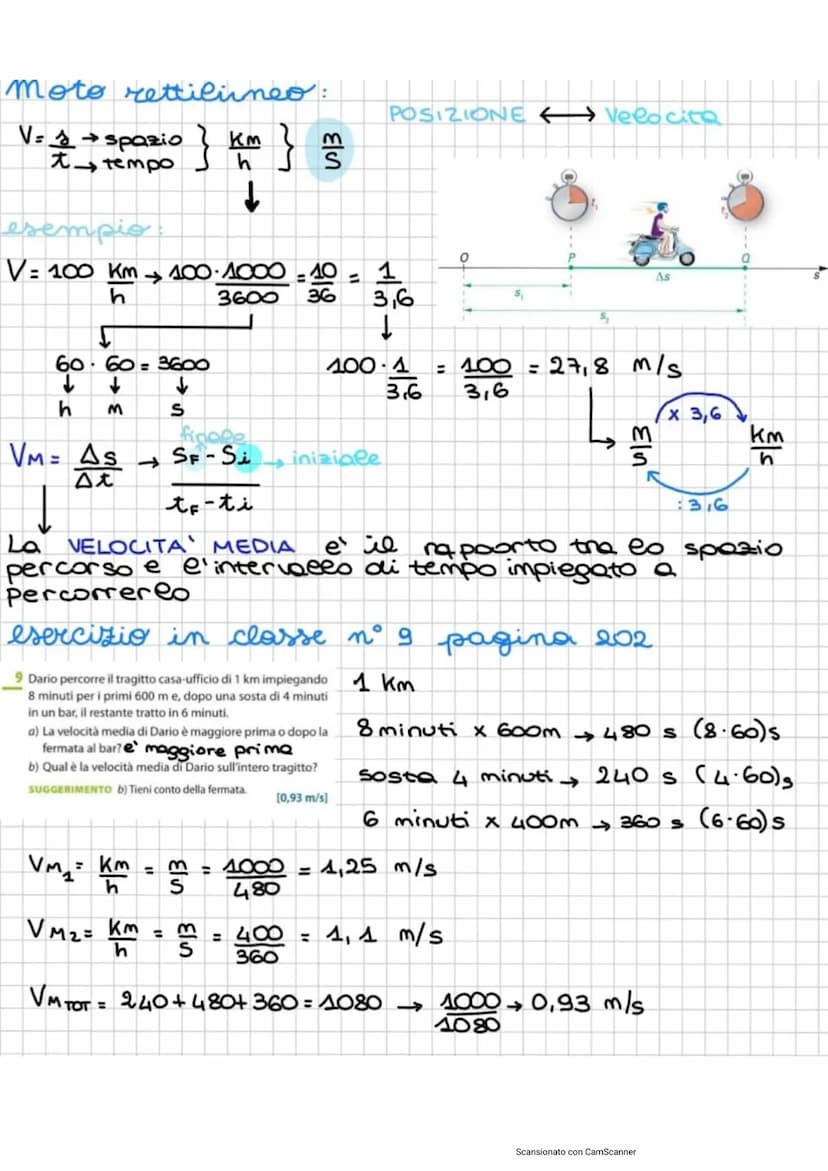 Moto rettilineo:
POSIZIONE ↔ Velocità
V = s/t → spazio → tempo } Km/h } m/s
esempio:
V = 100 Km/h → 100 · 1000/3600 = 10/36 = 1/3,6
O P Q s
t₁ t₂
Δs
s₁
s₂
60 · 60 = 3600
h m s
100 · 1/3,6 = 100/3,6 = 27,8 m/s
m/s x 3,6 Km/h
: 3,6
finale
VM = Δs/Δt → SF - Si / tF - ti → iniziale
La VELOCITA' MEDIA e' il rapoorto tra lo spazio
percorso e l'intervallo di tempo impiegato a
percorrerlo
esercizio in classe n° 9 pagina 202
9 Dario percorre il tragitto casa-ufficio di 1 km impiegando
8 minuti per i primi 600 m e, dopo una sosta di 4 minuti
in un bar, il restante tratto in 6 minuti.
a) La velocità media di Dario è maggiore prima o dopo la
fermata al bar? e' maggiore prima
b) Qual è la velocità media di Dario sull'intero tragitto?
SUGGERIMENTO b) Tieni conto della fermata.
[0,93 m/s]
1 Km
8 minuti x 600m → 480 s (8·60)s
sosta 4 minuti → 240 s (4·60)s
6 minuti x 400m → 360 s (6·60)s
VM₁ = Km/h = m/s = 1000/480 = 1,25 m/s
VM2 = Km/h = m/s = 400/360 = 1,1 m/s
VM TOT = 240+480+360 = 1080 → 1000/1080 → 0,93 m/s
Scansionato con CamScanner